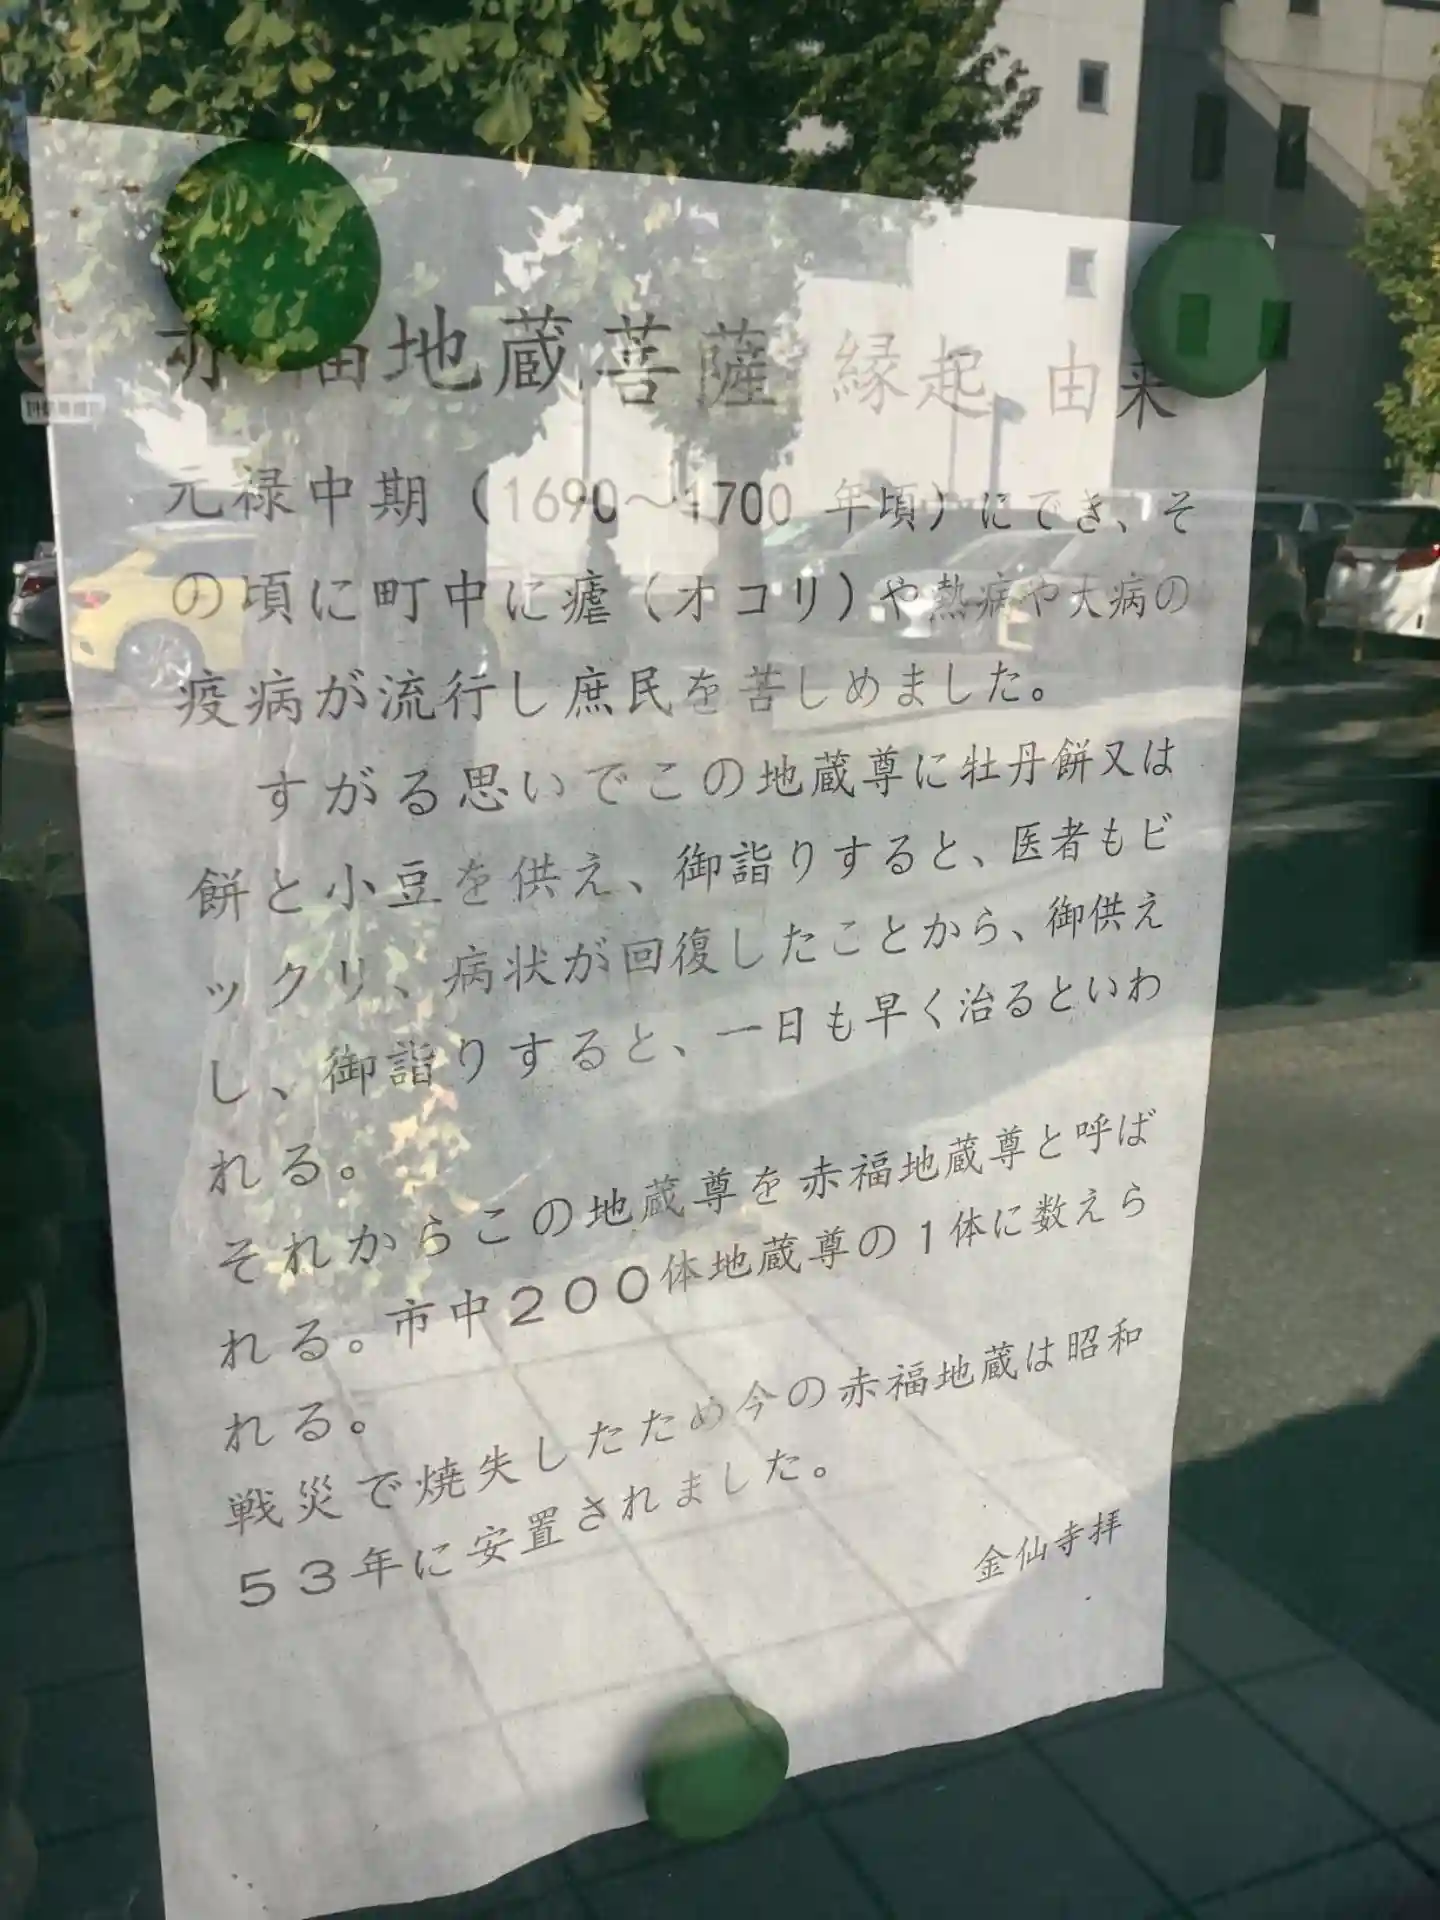 赤福地蔵菩薩 縁起 由来
元禄中期（1690～1700 年頃）にでき、そ
の頃に町中に瘧（オコリ）や熱病や大病の
疫病が流行し庶民を苦しめました。
すがる思いでこの地蔵尊に牡丹餅又は
餅と小豆を供え、御詣りすると、医者もビ
ックリ、病状が回復したことから、御供え
し、御詣りすると、一日も早く治るといわ
れる。
それからこの地蔵尊を赤福地蔵尊と呼ば
れる。市中２００体地蔵尊の１体に数えら
れる。
戦災で焼失したため今の赤福地蔵は昭和
５３年に安置されました。
金仙寺拝